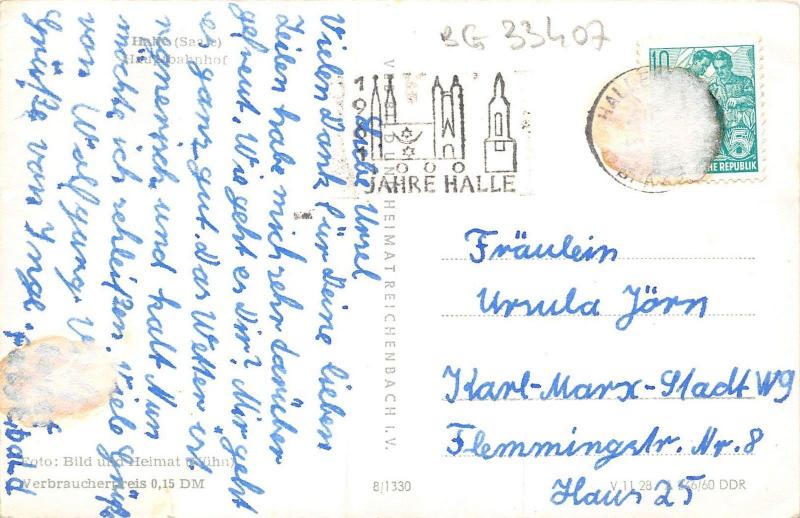 BG 33407
Halle (Saale)
Hauptbahnhof
Liebe Ursel
Vielen Dank für Deine lieben
Zeilen habe mich sehr darüber
gefreut. Wie geht es Dir? Mir geht
es ganz gut. Das Wetter ist
regnerisch und kalt Nun
möchte ich schließen. Viele Grüße
von Wolfgang.
Grüße von Inge.
bald
1961
1000
JAHRE HALLE
HALLE
10
REPUBLIK
VERLAG BILD UND HEIMAT REICHENBACH I. V.
Fräulein
Ursula Jörn
Karl-Marx-Stadt W9
Flemmingstr. Nr. 8
Haus 25
Foto: Bild und Heimat (Kühn)
Verbraucherpreis 0,15 DM
8/1330
V 11 28 A 246/60 DDR